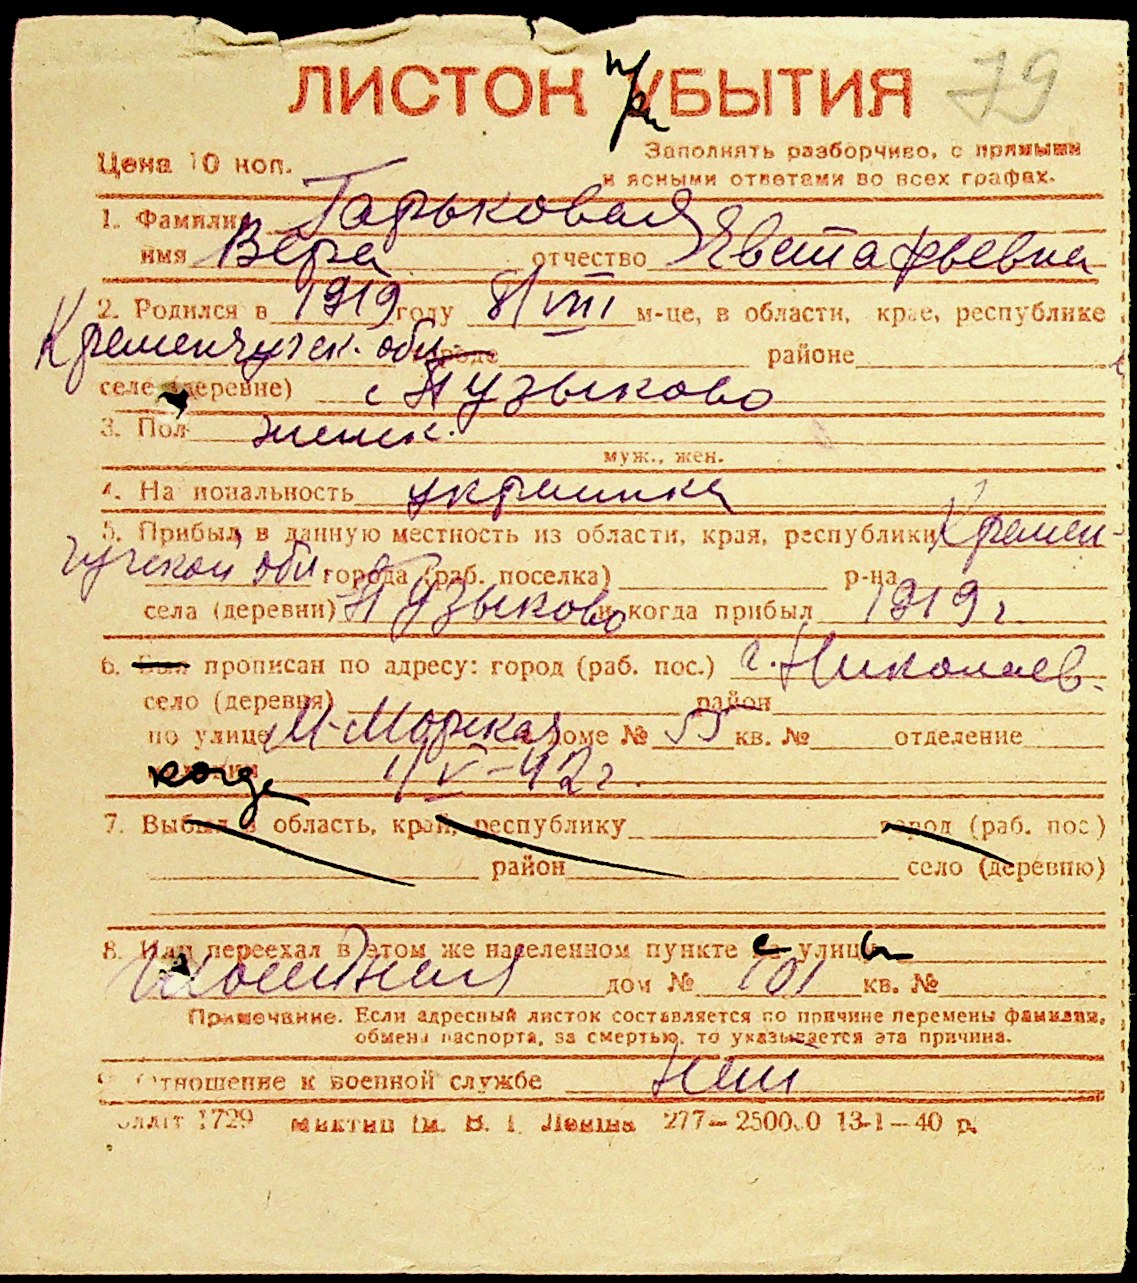 ЛИСТОК при УБЫТИЯ 79
Цена 10 коп. Заполнять разборчиво, с прямыми
и ясными ответами во всех графах.
1. Фамилия Гарьковая
имя Вера отчество Явстафьевна
2. Родился в 1919 году 8/VIII м-це, в области, крае, республике
Кременчугск. обл городе районе
селе (деревне) с Пузыково
3. Пол женск.
муж., жен.
4. Национальность украинка
5. Прибыл в данную местность из области, края, республики Кремен-
чугской обл города (раб. поселка) р-на
села (деревни) Пузыково и когда прибыл 1919 г
6. Был прописан по адресу: город (раб. пос.) г. Николаев
село (деревня) район
по улице М-Морская доме № 55 кв. № отделение
когда 1/V-42 г.
7. Выбыл в область, край, республику город (раб. пос.)
район село (деревню)
8. Или переехал в этом же населенном пункте с улицы
дом № 101 кв. №
Примечание. Если адресный листок составляется по причине перемены фамилии,
обмена паспорта, за смертью, то указывается эта причина.
Отношение к военной службе нет
1729 277—2500.0 13-1—40 р.